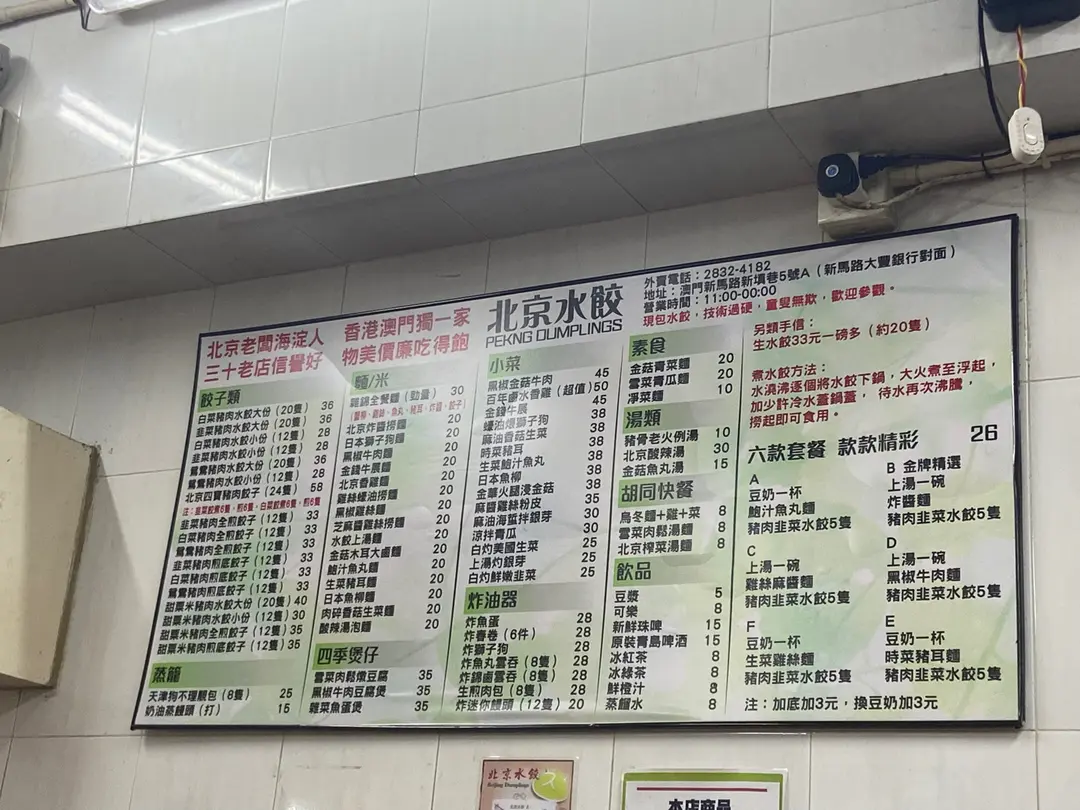 北京老闆海淀人
三十老店信譽好
香港澳門獨一家
物美價廉吃得飽
北京水餃
PEKNG DUMPLINGS
外賣電話：2832-4182
地址：澳門新馬路新填巷5號A（新馬路大豐銀行對面）
營業時間：11:00-00:00
現包水餃，技術過硬，童叟無欺，歡迎參觀。
餃子類
白菜豬肉水餃大份（20隻） 36
韭菜豬肉水餃大份（20隻） 36
白菜豬肉水餃小份（12隻） 28
韭菜豬肉水餃小份（12隻） 28
鴛鴦豬肉水餃大份（20隻） 36
鴛鴦豬肉水餃小份（12隻） 28
北京四寶豬肉餃子（24隻） 58
注：韭菜餃煮6隻，煎6隻，白菜餃煮6隻，煎6隻
韭菜豬肉全煎餃子（12隻） 33
白菜豬肉全煎餃子（12隻） 33
鴛鴦豬肉全煎餃子（12隻） 33
韭菜豬肉煎底餃子（12隻） 33
白菜豬肉煎底餃子（12隻） 33
鴛鴦豬肉煎底餃子（12隻） 33
甜粟米豬肉水餃大份（20隻）40
甜粟米豬肉水餃小份（12隻）30
甜粟米豬肉全煎餃子（12隻）35
甜粟米豬肉煎底餃子（12隻）35
蒸籠
天津狗不理靚包（8隻） 25
奶油蒸饅頭（打） 15
麵/米
雜錦全餐麵（勁量） 30
北京炸醬撈麵 20
日本獅子狗麵 20
黑椒牛肉麵 20
金錢牛展麵 20
北京香雞麵 20
雞絲蠔油撈麵 20
黑椒雞絲麵 20
芝麻醬雞絲撈麵 20
水餃上湯麵 20
金菇木耳大鹵麵 20
鮑汁魚丸麵 20
生菜豬耳麵 20
日本魚柳麵 20
肉碎香菇生菜麵 20
酸辣湯泡麵 20
四季煲仔
雪菜肉鬆燉豆腐 35
黑椒牛肉豆腐煲 35
雜菜魚蛋煲 35
小菜
黑椒金菇牛肉 45
百年鹵水香雞（超值）50
金錢牛展 45
蠔油煨獅子狗 38
麻油香菇生菜 38
時菜豬耳 38
生菜鮑汁魚丸 38
日本魚柳 38
金華火腿浸金菇 38
麻醬雞絲粉皮 35
麻油海蜇拌銀芽 30
涼拌青瓜 30
白灼美國生菜 25
上湯灼銀芽 25
白灼鮮嫩韭菜 25
炸油器
炸魚蛋 28
炸春卷（6件） 28
炸獅子狗 28
炸魚丸雲吞（8隻） 28
炸錦鹵雲吞（8隻） 28
生煎肉包（8隻） 28
炸迷你饅頭（12隻） 20
素食
金菇菜麵 20
雪菜青瓜麵 20
淨菜麵 10
湯類
豬骨老火例湯 10
北京酸辣湯 30
金菇魚丸湯 15
胡同快餐
烏冬麵+雞+菜 8
雪菜肉鬆湯麵 8
北京榨菜湯麵 8
飲品
豆漿 5
可樂 8
新鮮珠啤 15
原裝青島啤酒 15
冰紅茶 8
冰綠茶 8
鮮橙汁 8
蒸餾水 8
另類手信：
生水餃33元一磅多（約20隻）
煮水餃方法：
水澆沸逐個將水餃下鍋，大火煮至浮起，
加少許冷水蓋鍋蓋， 待水再次沸騰，
撈起即可食用。
六款套餐 款款精彩 26
A
豆奶一杯
鮑汁魚丸麵
豬肉韭菜水餃5隻
B 金牌精選
上湯一碗
炸醬麵
豬肉韭菜水餃5隻
C
上湯一碗
雞絲麻醬麵
豬肉韭菜水餃5隻
D
上湯一碗
黑椒牛肉麵
豬肉韭菜水餃5隻
F
豆奶一杯
生菜雞絲麵
豬肉韭菜水餃5隻
E
豆奶一杯
時菜豬耳麵
豬肉韭菜水餃5隻
注：加底加3元，換豆奶加3元
北京水餃
Beijing Dumplings
本店商品